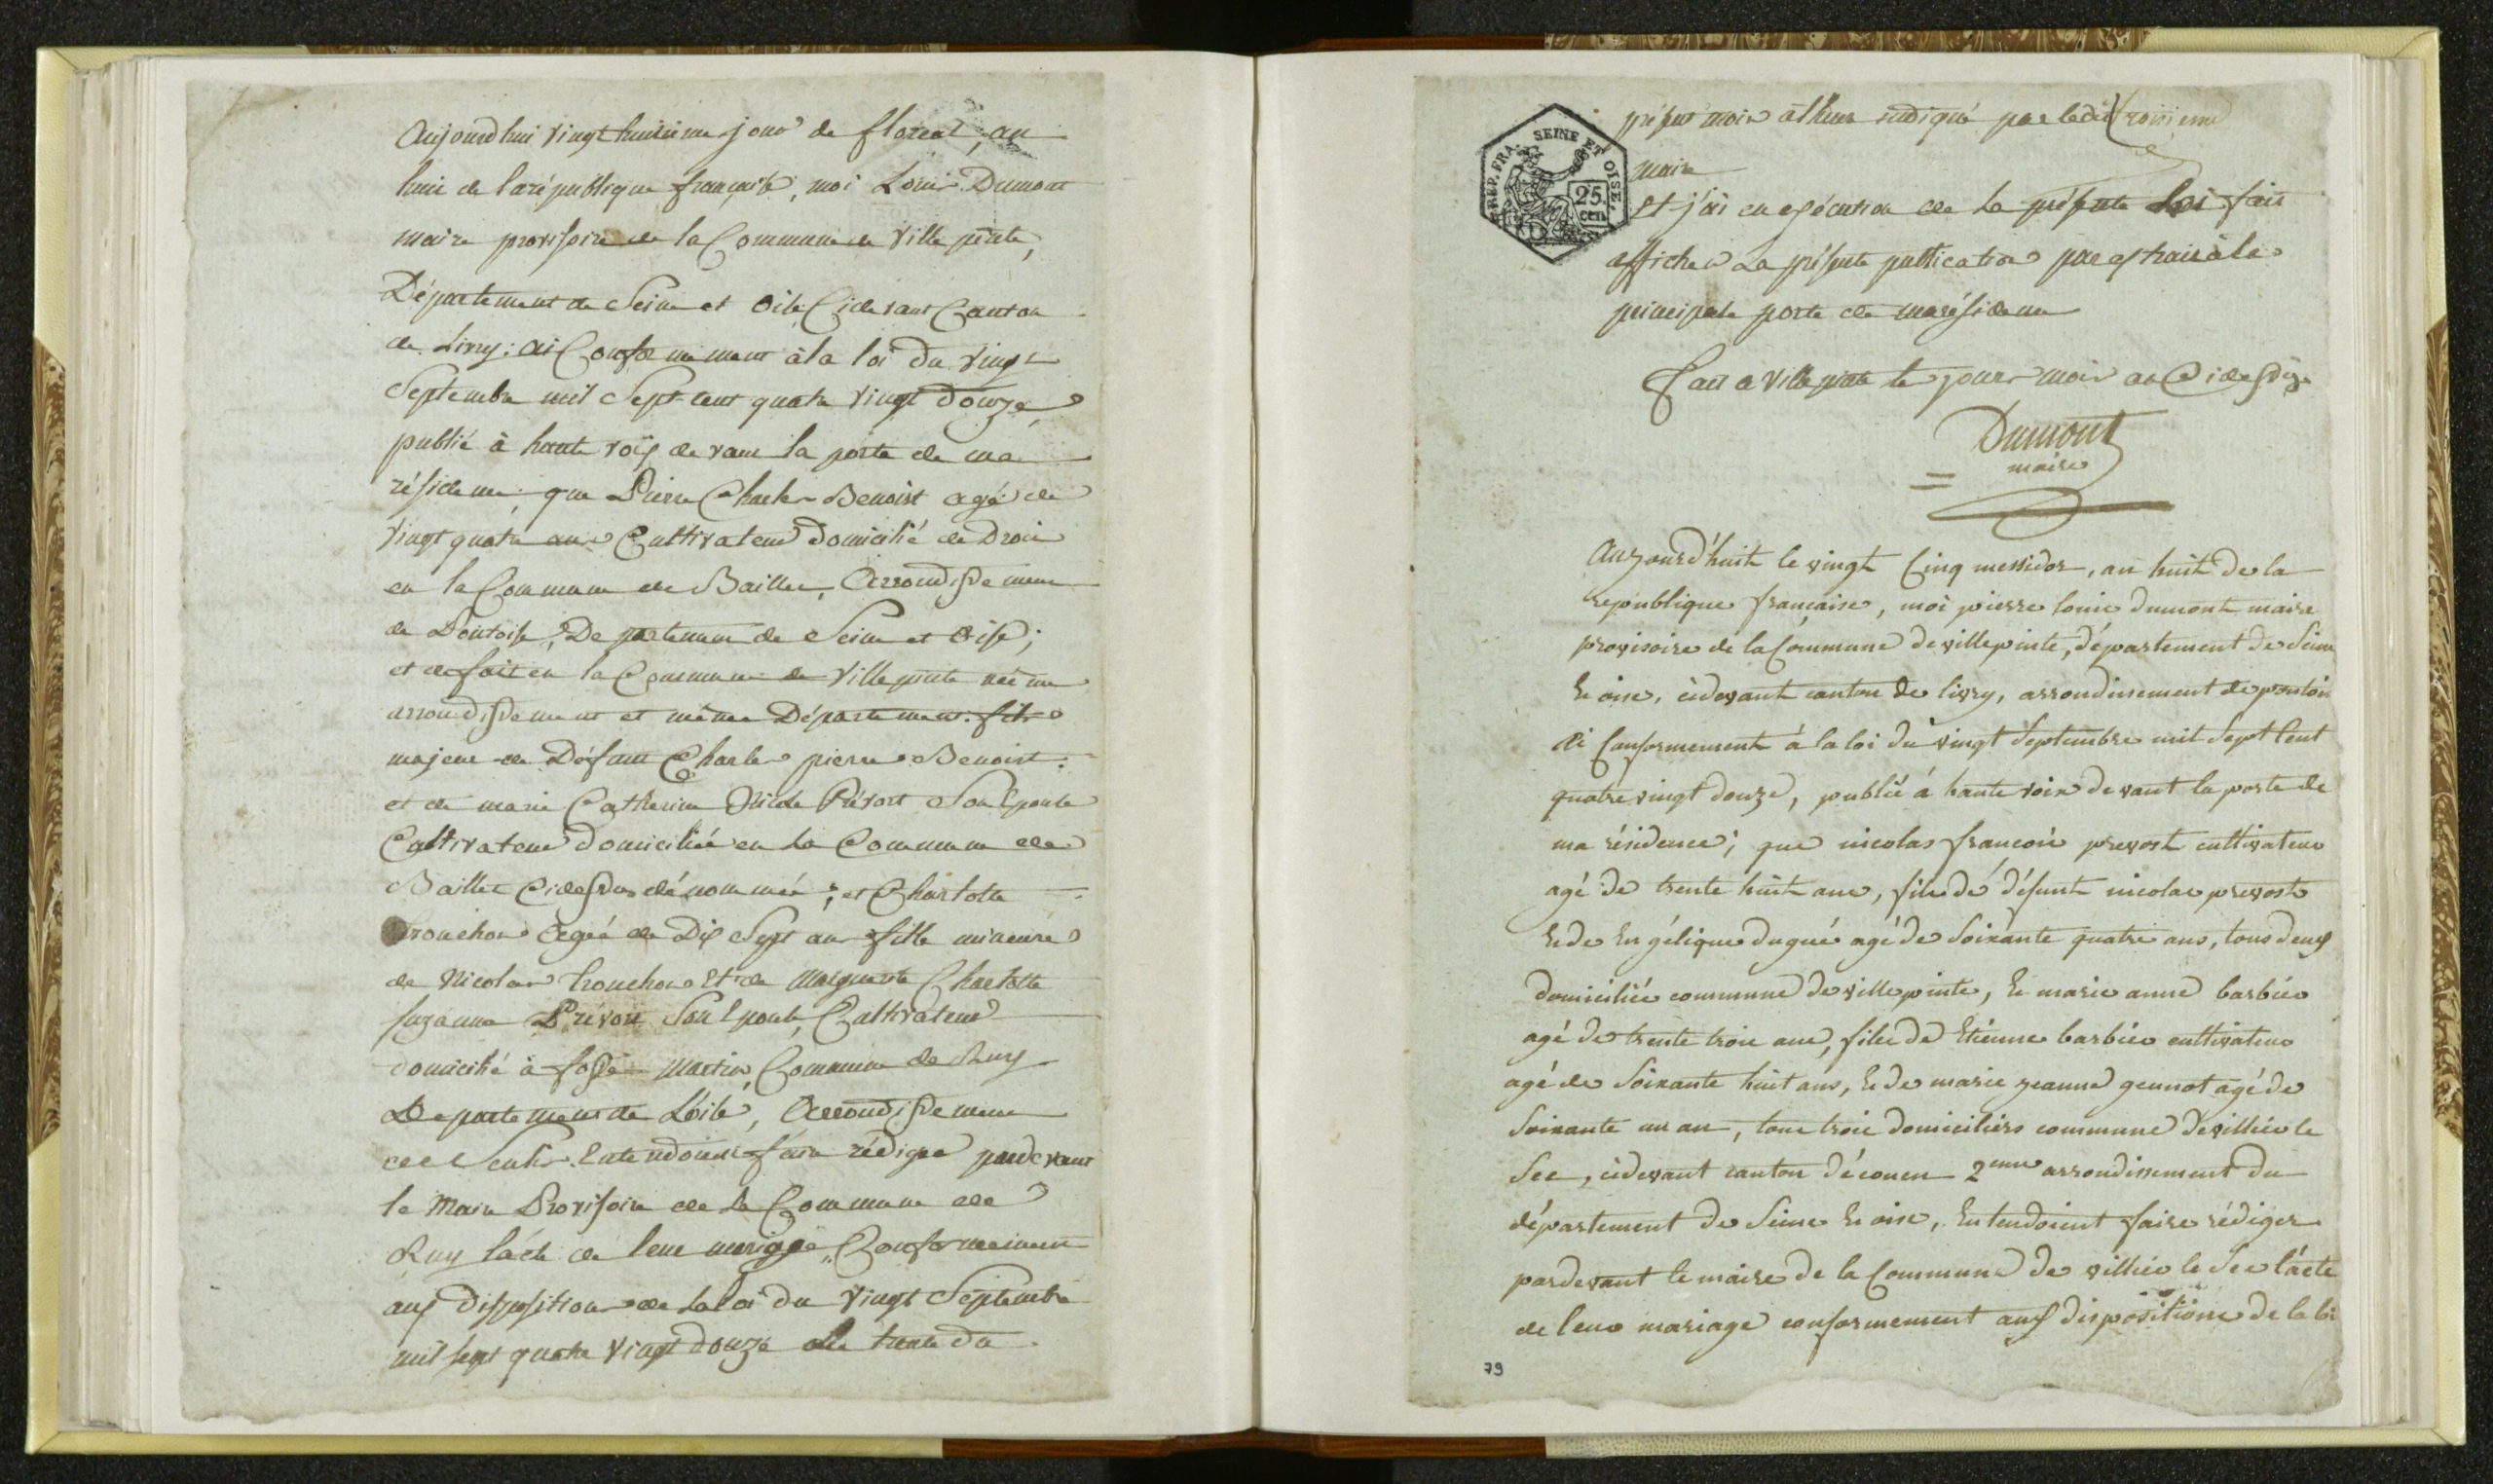 Aujourdhui vingt huitieme jour de floreal, an
huit de la république française, moi Louis Dumont
maire provisoire de la Commune de Villepinte,
Département de Seine et Oise Cidevant Canton
de Livry: ai Conformément à la loi du vingt
Septembre mil Sept cent quatre vingt douze,
publié à haute voix devant la porte de ma
résidence, que Pierre Charles Benoist agé de
vingt quatre ans Cultivateur domicilié de Droit
en la Commune de Baillet, Arrondissement
de Pontoise, Departement de Seine et Oise;
et de fait en la Commune de Villepinte même
arrondissement et même Département. fils
majeur de Défunt Charles pierre Benoist
et de marie Catherine Prévost Son Epouse
Cultivateur domiciliée en la Commune de
Baillet Cidessus dénommée; et Charlotte
Trouchon agée de Dix Sept ans fille mineure
de Nicolas Trouchon et de Marguerite Charlotte
Suzanne Prévost Son Epouse, Cultivateur
domicilié à fosse Martin, Commune de Ruy
Departement de L'oise, Arrondissement
de Senlis. Entendoient faire rédiger pardevant
le Maire Provisoire de la Commune de
Ruy l'acte de leur mariage, Conformément
aux Dispositions de la loi du vingt Septembre
mil sept quatre vingt douze le trente du
présent mois à l'heure indiqué par ledit troisieme
maire
Et j'ai en exécution de la présente Loi fait
afficher La présente publication par extrait à la
principale porte de ma résidence
Fait a Villepinte le jour mois an Cidessus
Dumont
maire
SEINE ET OISE.
REP. FRA.
25.
cen
Aujourd'huit le vingt Cinq messidor, an huit de la
republique française, moi pierre louis dumont maire
provisoire de la Commune de villepinte, département de Seine
Et oise, cidevant canton de livry, arrondissement de pontois
Ai Conformement à la loi du vingt Septembre mil Sept Cent
quatre vingt douze, publié à haute voix devant la porte de
ma résidence; que nicolas francois prevost cultivateur
agé de trente huit ans, fils de défunt nicolas prevost
Et de Engélique dugué agé de Soixante quatre ans, tous deux
domiciliés commune de villepinte, Et marie anne barbier
agé de trente trois ans, fille de Etienne barbier cultivateur
agé de Soixante huit ans, Et de marie jeanne gennot agé de
Soixante un an, tous trois domiciliers commune de villier le
Sec, cidevant canton d'écouen 2eme arrondissement du
département de Seine Et oise, Entendoient faire rédiger
pardevant le maire de la Commune de villier le Sec l'acte
de leur mariage conformement aux dispositions de la loi
79